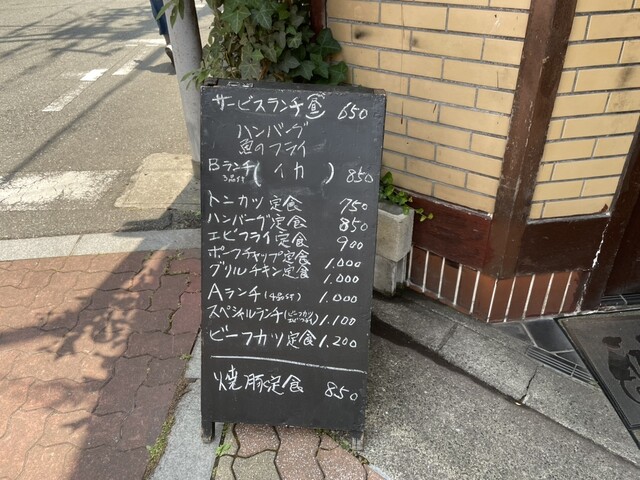 サービスランチ 昼 650
ハンバーグ
魚のフライ
Bランチ(イカ) 850
3品付
トンカツ定食 750
ハンバーグ定食 850
エビフライ定食 900
ポークチャップ定食 1.000
グリルチキン定食 1.000
Aランチ(4品付) 1.000
スペシャルランチ 1.100
ビーフカツ定食 1.200
焼豚定食 850